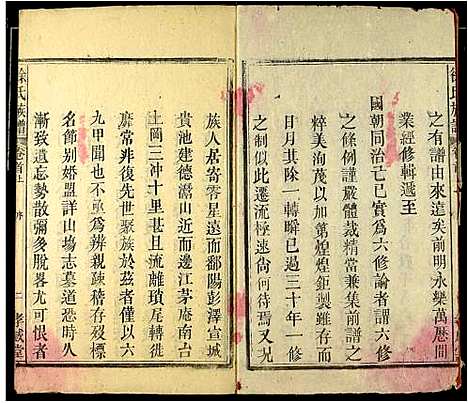 徐氏族譜
之有譜由來遠矣前明永樂萬曆間
業經修輯遞至
國朝同治己巳實爲六修論者謂六修
之條例謹嚴體裁精當兼集前譜之
粹美洵茂以加第煌煌鉅製雖存而
日月其除一轉瞬已過三十年一修
之制似此遷流極速尙何待焉又況
族人居寄零星遠而鄱陽彭澤宣城
貴池建德潛山近而邊江茅庵南台
土岡三冲十里甚且流離瑣尾轉徙
靡常非復先世聚族於茲者僅以六
九甲聞也不亟爲辨親疎稽存歿標
名節別婚盟詳山塲志墓道恐時久
漸致遺忘勢散彌多脫畧尤可恨者
徐氏族譜 卷首上 序 二